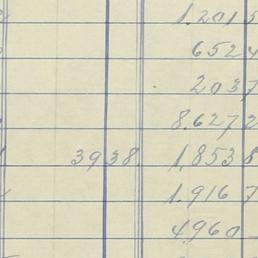 1.201 5
652 4
203 7
8.627 2
3938 1.853 8
1.916 7
4960 –